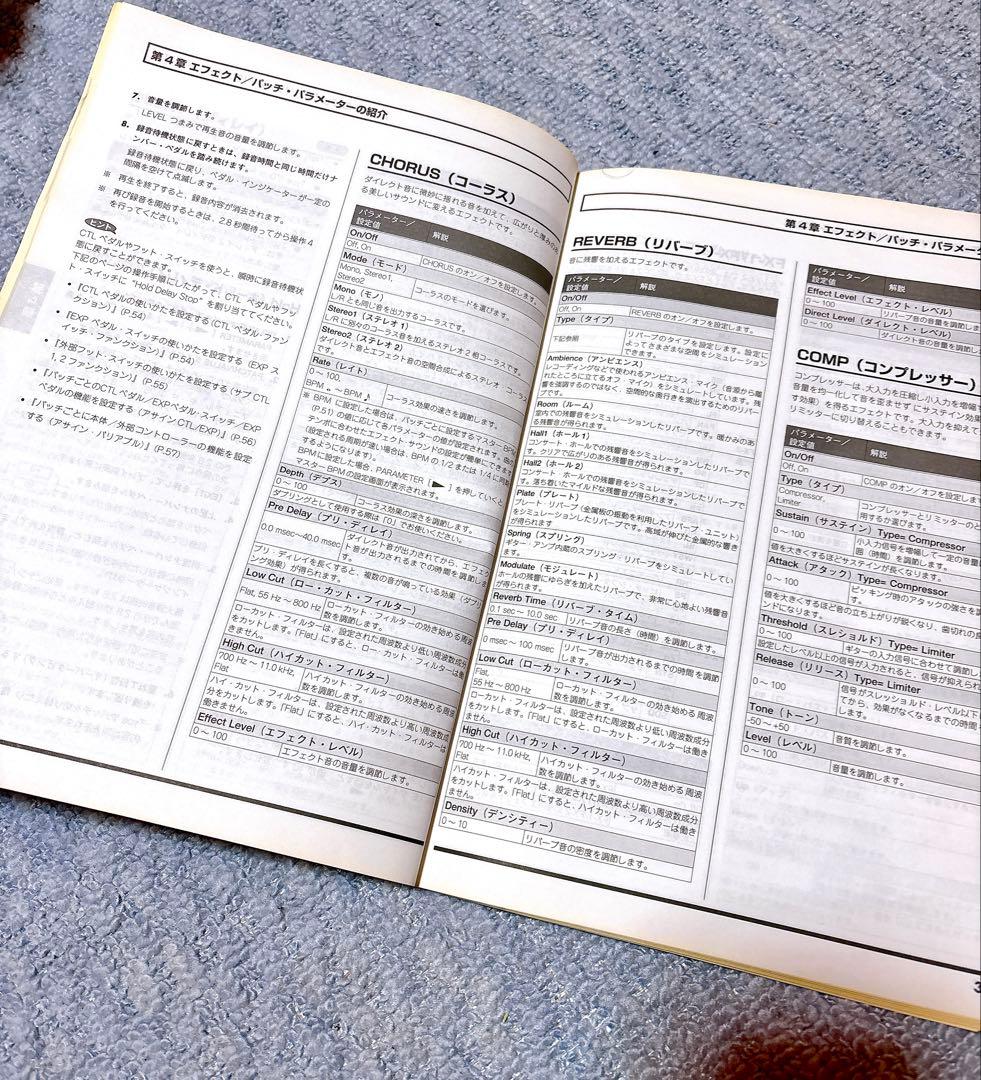 第4章 エフェクト／パッチ・パラメーターの紹介
7. 音量を調節します。
LEVEL つまみで再生音の音量を調節します。
8. 録音待機状態に戻すときは、録音時間と同じ時間だけナ
ンバー・ペダルを踏み続けます。
録音待機状態に戻り、ペダル・インジケーターが一定の
間隔を空けて点滅します。
※ 再生を終了すると、録音内容が消去されます。
※ 再び録音を開始するときは、2.8 秒間待ってから操作 4
を行ってください。
ヒント
CTL ペダルやフット・スイッチを使うと、瞬時に録音待機状
態に戻すことができます。
下記のページの操作手順にしたがって、CTL ペダルやフッ
ト・スイッチに "Hold Delay Stop" を割り当ててください。
• 『CTL ペダルの使いかたを設定する（CTL ペダル・ファン
クション）』（P.54）
• 『EXP ペダル・スイッチの使いかたを設定する（EXP ス
イッチ・ファンクション）』（P.54）
• 『外部フット・スイッチの使いかたを設定する（サブ CTL
1, 2 ファンクション）』（P.55）
• 『パッチごとのCTL ペダル／EXPペダル・スイッチ／EXP
ペダルの機能を設定する（アサインCTL/EXP）』（P.56）
• 『パッチごとに本体／外部コントローラーの機能を設定
する（アサイン・バリアブル）』（P.57）
CHORUS（コーラス）
ダイレクト音に微妙に揺れる音を加えて、広がりと厚みのあ
る美しいサウンドに変えるエフェクトです。
パラメーター／
設定値 解説
On/Off
Off, On CHORUS のオン／オフを設定します。
Mode（モード）
Mono, Stereo1,
Stereo2 コーラスのモードを選びます。
Mono（モノ）
L/R とも同じ音を出力するコーラスです。
Stereo1（ステレオ 1）
L/R に別々のコーラス音を加えるステレオ 2 相コーラスです。
Stereo2（ステレオ 2）
ダイレクト音とエフェクト音の空間合成によるステレオ・コーラス
Rate（レイト）
0～100,
BPM ～ BPM コーラス効果の速さを調節します。
※ BPM に設定した場合は、パッチごとに設定するマスター
(P.51) の値に応じて各パラメーターの値が設定されます。
ンポに合わせたエフェクト・サウンドの設定が簡単にできます
(設定される周期が速い場合は、BPM の 1/2 または 1/4 に同期
するようになります)。
BPM に設定した場合、PARAMETER [▶] を押していくと
マスター BPM の設定画面が表示されます。
Depth（デプス）
0～100 コーラス効果の深さを調節します。
ダブリングとして使用する際は「0」でお使いください。
Pre Delay（プリ・ディレイ）
0.0 msec～40.0 msec ダイレクト音が出力されてから、エフェク
ト音が出力されるまでの時間を調節しま
プリ・ディレイを長くすると、複数の音が鳴っている効果（ダブリ
ング効果）が得られます。
Low Cut（ロー・カット・フィルター）
Flat, 55 Hz～800 Hz ローカット・フィルターの効き始める周波
数を調節します。
ローカット・フィルターは、設定された周波数より低い周波数成分
をカットします。「Flat」にすると、ロー・カット・フィルターは働
きません。
High Cut（ハイカット・フィルター）
700 Hz～11.0 kHz,
Flat ハイカット・フィルターの効き始める周波
数を調節します。
ハイ・カット・フィルターは、設定された周波数より高い周波数成
分をカットします。「Flat」にすると、ハイ・カット・フィルターは
きません。
Effect Level（エフェクト・レベル）
0～100 エフェクト音の音量を調節します。
第4章 エフェクト／パッチ・パラメータ
REVERB（リバーブ）
音に残響を加えるエフェクトです。
パラメーター／
設定値 解説
On/Off
Off, On REVERB のオン／オフを設定します。
Type（タイプ）
下記参照 リバーブのタイプを設定します。設定に
よってさまざまな空間をシミュレーション
できます。
Ambience（アンビエンス）
レコーディングなどで使われるアンビエンス・マイク（音源から離
れたところに立てるオフ・マイク）をシミュレートしています。残
響を強調するのではなく、空間的な奥行きを演出するためのリバー
ブです。
Room（ルーム）
室内での残響音をシミュレーションしたリバーブです。暖かみのあ
る残響音が得られます。
Hall1（ホール 1）
コンサート・ホールでの残響音をシミュレーションしたリバーブで
す。クリアで広がりのある残響音が得られます。
Hall2（ホール 2）
コンサート・ホールでの残響音をシミュレーションしたリバーブで
す。落ち着いたマイルドな残響音が得られます。
Plate（プレート）
プレート・リバーブ（金属板の振動を利用したリバーブ・ユニット）
をシミュレーションしたリバーブです。高域が伸びた金属的な響き
が得られます。
Spring（スプリング）
ギター・アンプ内蔵のスプリング・リバーブをシミュレートしてい
ます。
Modulate（モジュレート）
ホールの残響にゆらぎを加えたリバーブで、非常に心地よい残響音
が得られます。
Reverb Time（リバーブ・タイム）
0.1 sec～10.0 sec リバーブ音の長さ（時間）を調節します。
Pre Delay（プリ・ディレイ）
0 msec～100 msec リバーブ音が出力されるまでの時間を調節
します。
Low Cut（ローカット・フィルター）
Flat,
55 Hz～800 Hz ローカット・フィルターの効き始める周波
数を調節します。
ローカット・フィルターは、設定された周波数より低い周波数成分
をカットします。「Flat」にすると、ローカット・フィルターは働き
ません。
High Cut（ハイカット・フィルター）
700 Hz～11.0 kHz,
Flat ハイカット・フィルターの効き始める周波
数を調節します。
ハイカット・フィルターは、設定された周波数より高い周波数成分
をカットします。「Flat」にすると、ハイカット・フィルターは働き
ません。
Density（デンシティー）
0～10 リバーブ音の密度を調節します。
パラメーター／
設定値 解説
Effect Level（エフェクト・レベル）
0～100 リバーブ音の音量を調節しま
Direct Level（ダイレクト・レベル）
0～100 ダイレクト音の音量を調節し
COMP（コンプレッサー）
コンプレッサーは、大入力を圧縮し小入力を増幅す
音量を均一化して音を歪ませずにサステイン効果
す効果）を得るエフェクトです。大入力を抑えて
リミッターに切り替えることもできます。
パラメーター／
設定値 解説
On/Off
Off, On COMP のオン／オフを設定します
Type（タイプ）
Compressor,
Limiter コンプレッサーとリミッターのと
用するか選びます。
Sustain（サステイン）Type= Compressor
0～100 小入力信号を増幅して一定の音量に
囲（時間）を調節します。
値を大きくするほどサステインが長くなります。
Attack（アタック）Type= Compressor
0～100 ピッキング時のアタックの強さを調
す。
値を大きくするほど音の立ち上がりが鋭くなり、歯切れの良
ンドになります。
Threshold（スレショルド）Type= Limiter
0～100 ギターの入力信号に合わせて調節し
設定したレベル以上の信号が入力されると、信号が抑えられ
Release（リリース）Type= Limiter
0～100 信号がスレッショルド・レベル以下
てから、効果がなくなるまでの時間
します。
Tone（トーン）
-50～+50 音質を調節します。
Level（レベル）
0～100 音量を調節します。
3